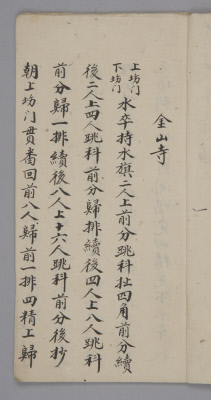 金山寺
上场门
下场门
水卒持水旗二人上前分跳科扯四角前分續
後二人上四人跳科前分歸排續後四人上八人跳科
前分歸一排續後八人上十六人跳科前分後抄
朝上场门貫畨回前八人歸前一排四精上歸